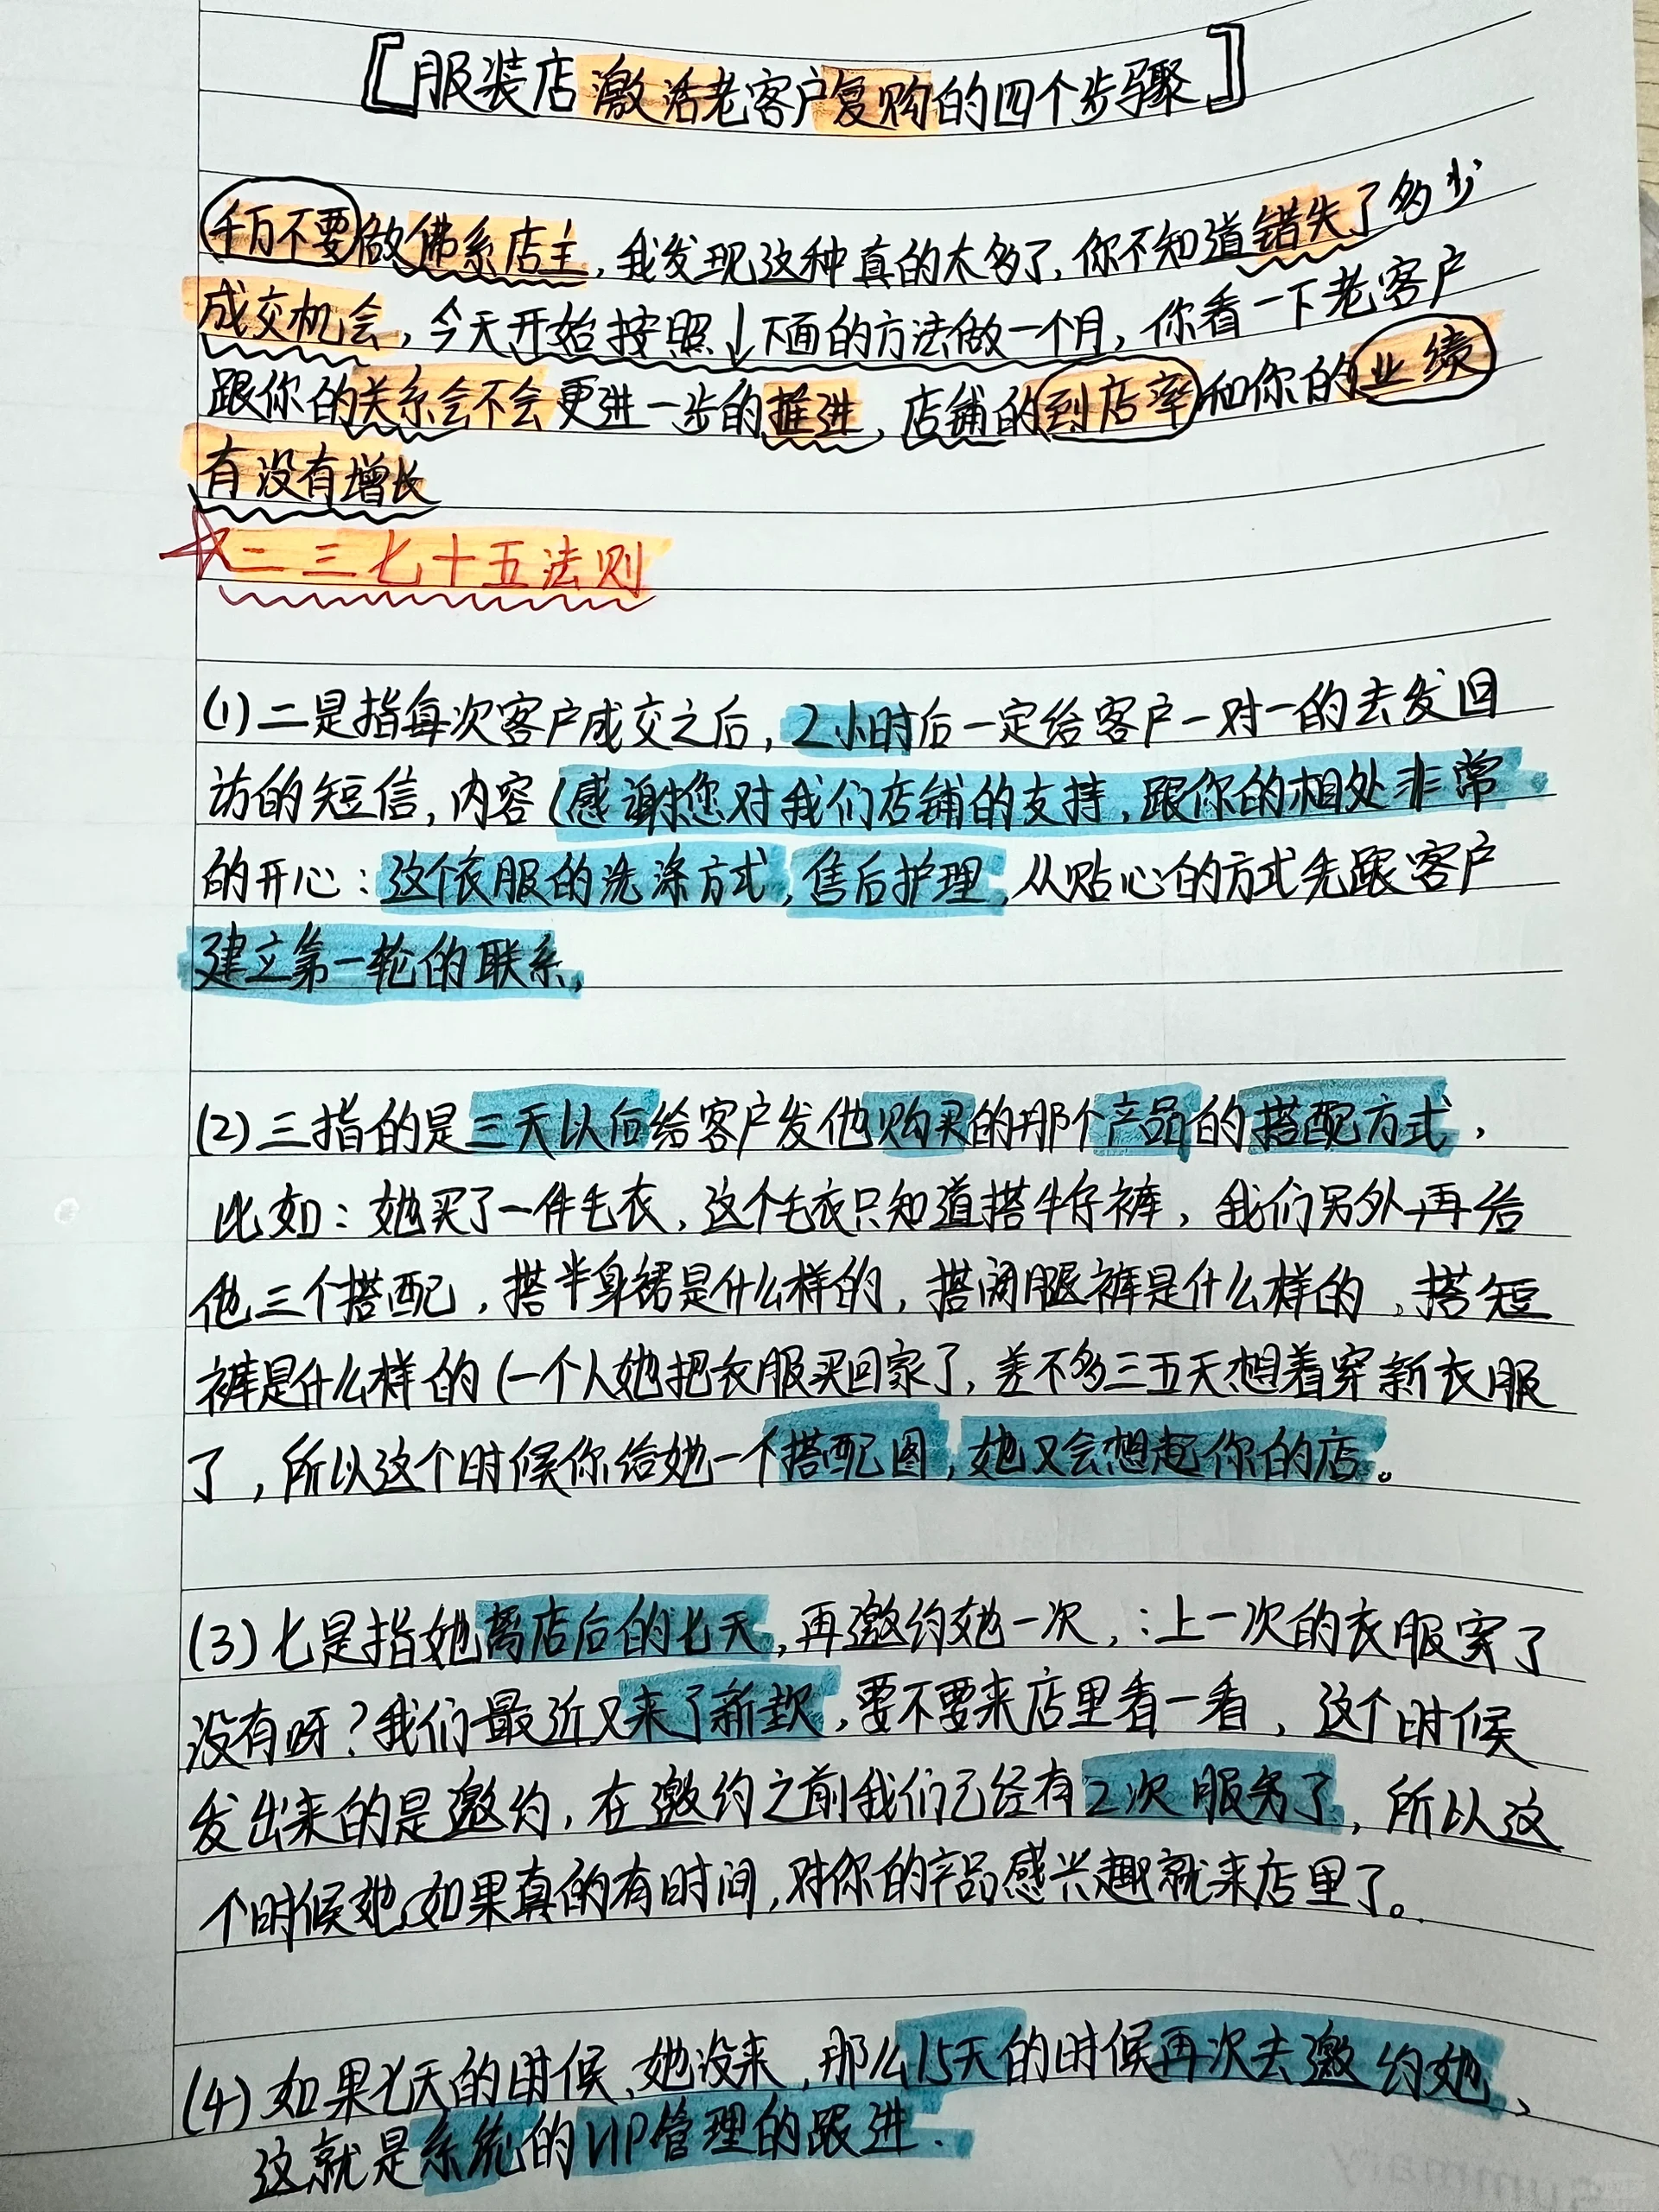 [服装店激活老客户复购的四个步骤]
千万不要做佛系店主,我发现这种真的太多了,你不知道错失了多少
成交机会,今天开始按照↓下面的方法做一个月,你看一下老客户
跟你的关系会不会更进一步的推进,店铺的到店率和你的业绩
有没有增长
☆二三七十五法则
(1)二是指每次客户成交之后,2小时后一定给客户一对一的去发回
访的短信,内容(感谢您对我们店铺的支持,跟你的相处非常
的开心:这个衣服的洗涤方式,售后护理,从贴心的方式先跟客户
建立第一轮的联系,
(2)三指的是三天以后给客户发他购买的那个产品的搭配方式,
比如:她买了一件毛衣,这个毛衣只知道搭牛仔裤,我们另外再给
他三个搭配,搭半身裙是什么样的,搭阔腿裤是什么样的,搭短
裤是什么样的(一个人她把衣服买回家了,差不多三五天想着穿新衣服
了,所以这个时候你给她一个搭配图,她又会想起你的店。
(3)七是指她离店后的七天,再邀约她一次,:上一次的衣服穿了
没有呀?我们最近又来了新款,要不要来店里看一看,这个时候
发出来的是邀约,在邀约之前我们已经有2次服务了,所以这
个时候她如果真的有时间,对你的产品感兴趣就来店里了。
(4)如果七天的时候,她没来,那么15天的时候再次去邀约她,
这就是系统的VIP管理的跟进.
summary